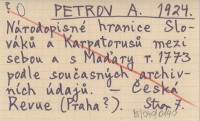 PETROV A. 1924.
Národopisné hranice Slo-
váků a Karpatorusů mezi
sebou a s Maďary r. 1773
podle současných archiv-
ních údajů. – Česká
Revue (Praha?). Stran 7.